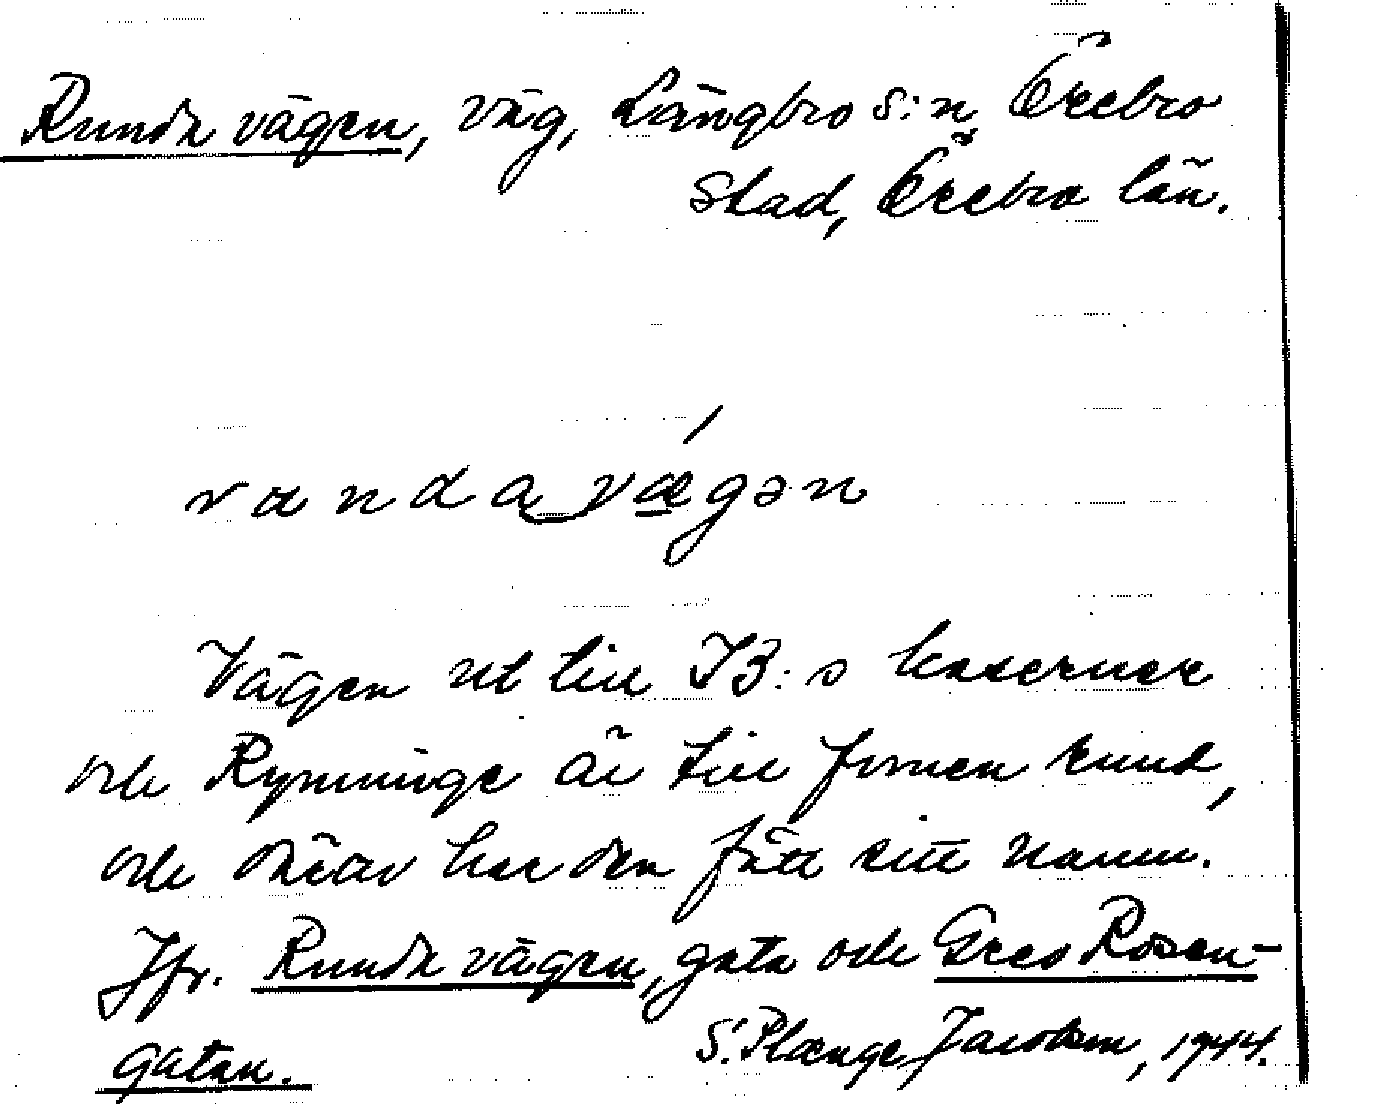 Runda vägen, väg, Längbro s:n Örebro
stad, Örebro län.
randa vægən
Vägen ut till I3:s kaserner
och Rynninge är till formen rund,
och därav har den fått sitt namn.
Jfr. Runda vägen, gata och Grev Rosen-
gatan. S. Plænge Jacobson, 1944.